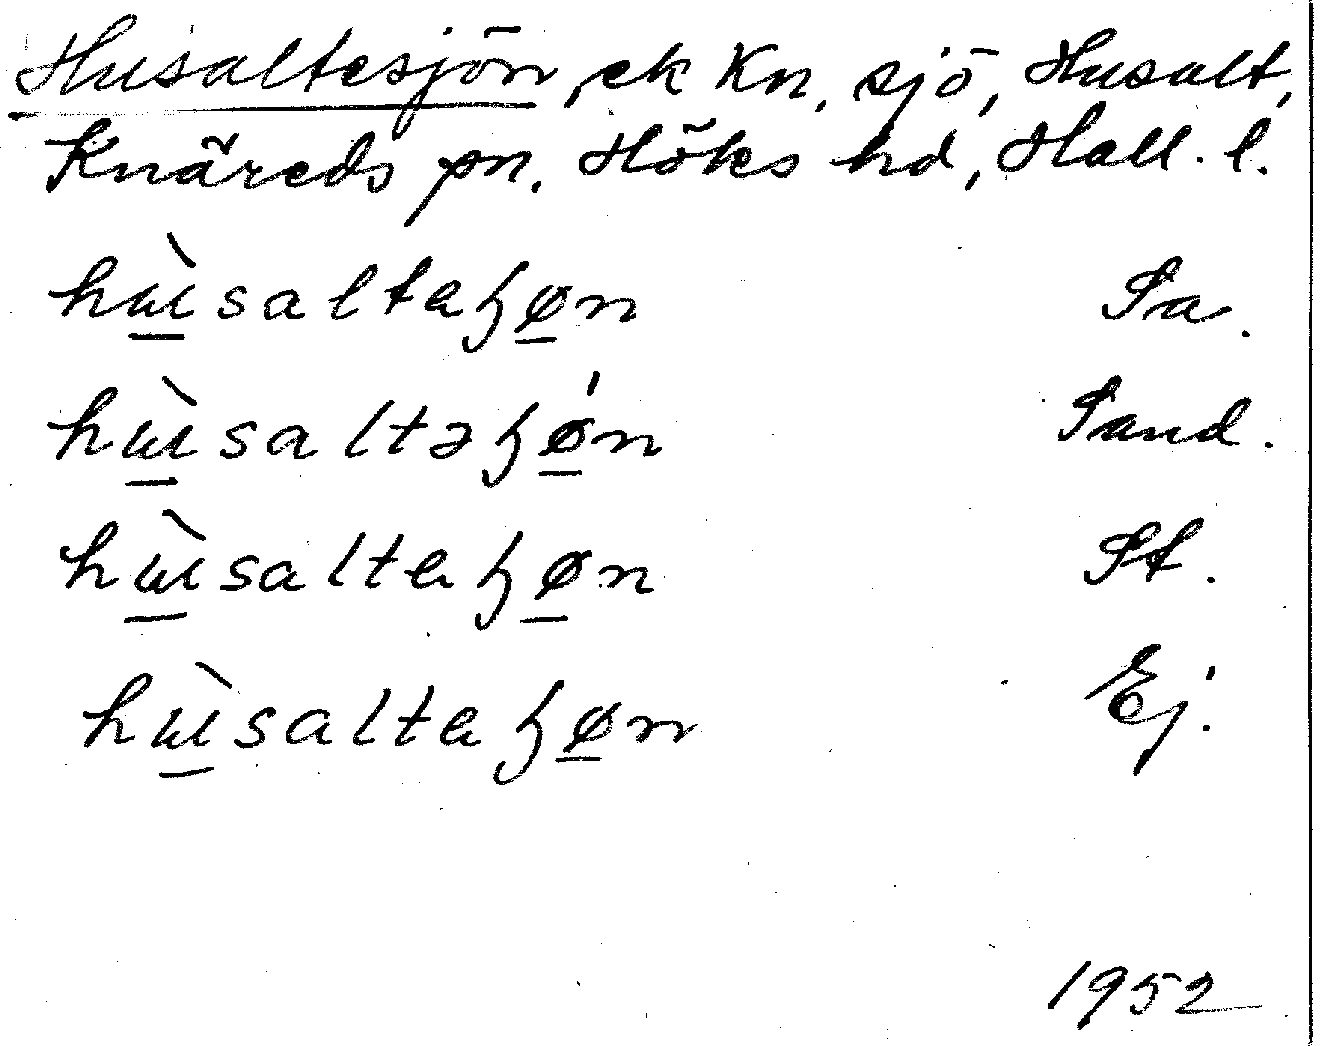 Husaltesjön, ek Kn, sjö, Husalt,
Knäreds sn. Höks hd, Hall. l.
hùsaltaɧøn Sa.
hùsaltəɧǿn Sand.
hùsaltaɧøn St.
hùsaltaɧøn Ej.
1952